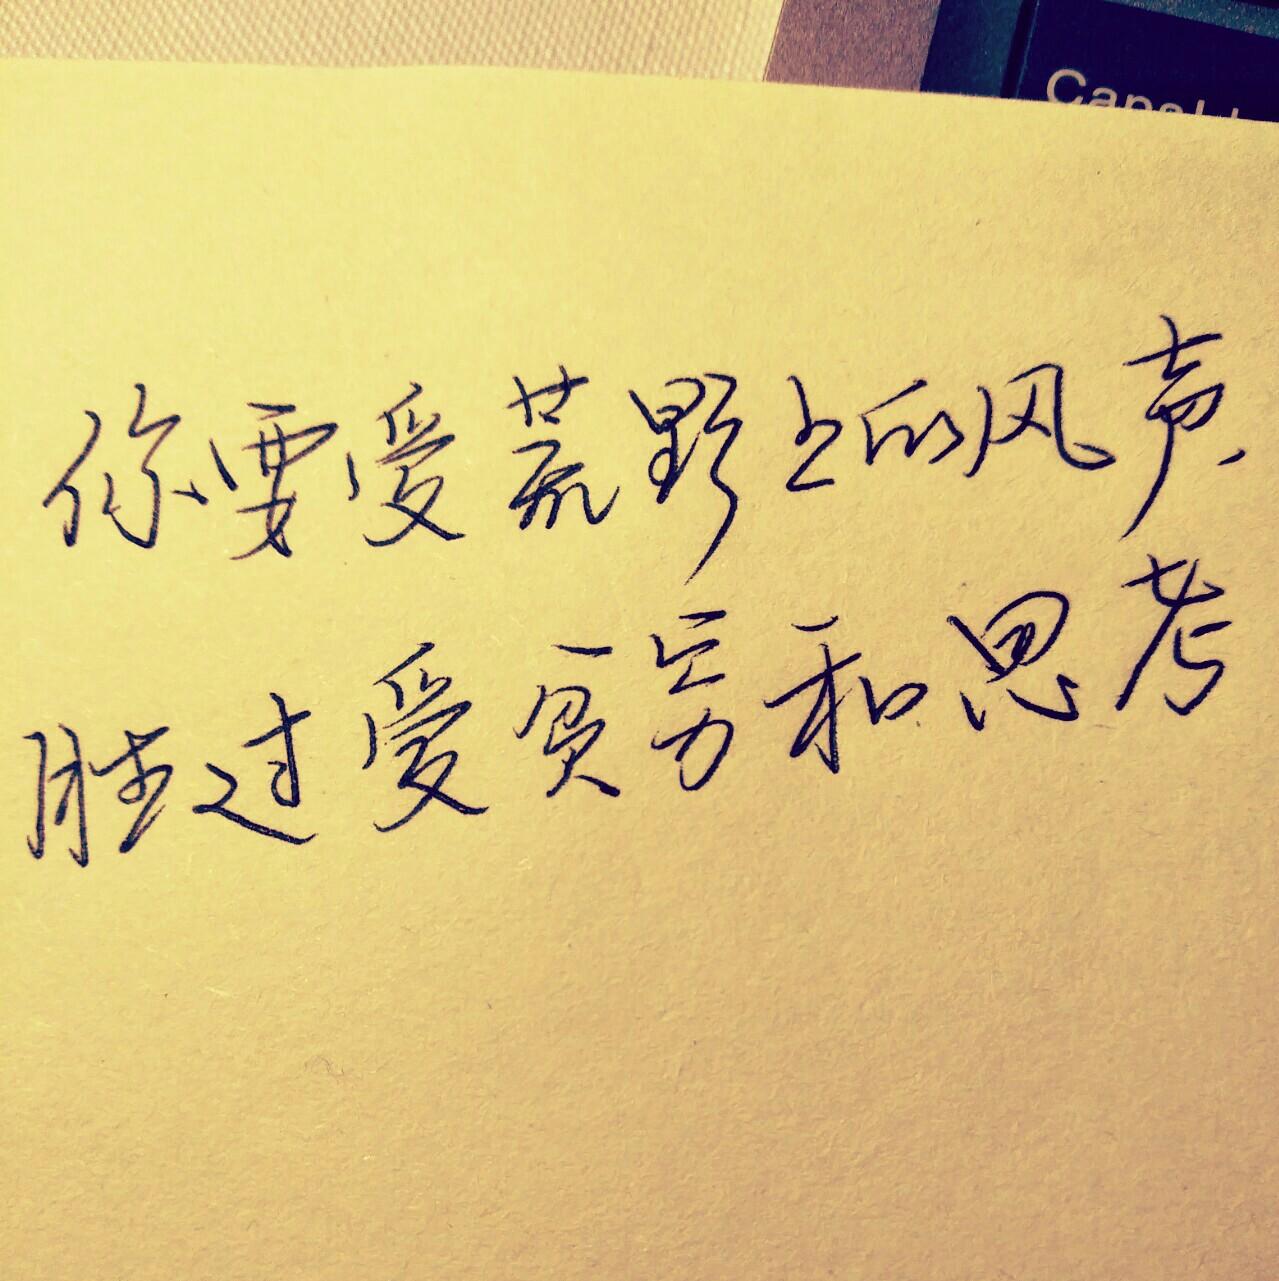 Caps L
你要爱荒野上的风声、
胜过爱贫穷和思考